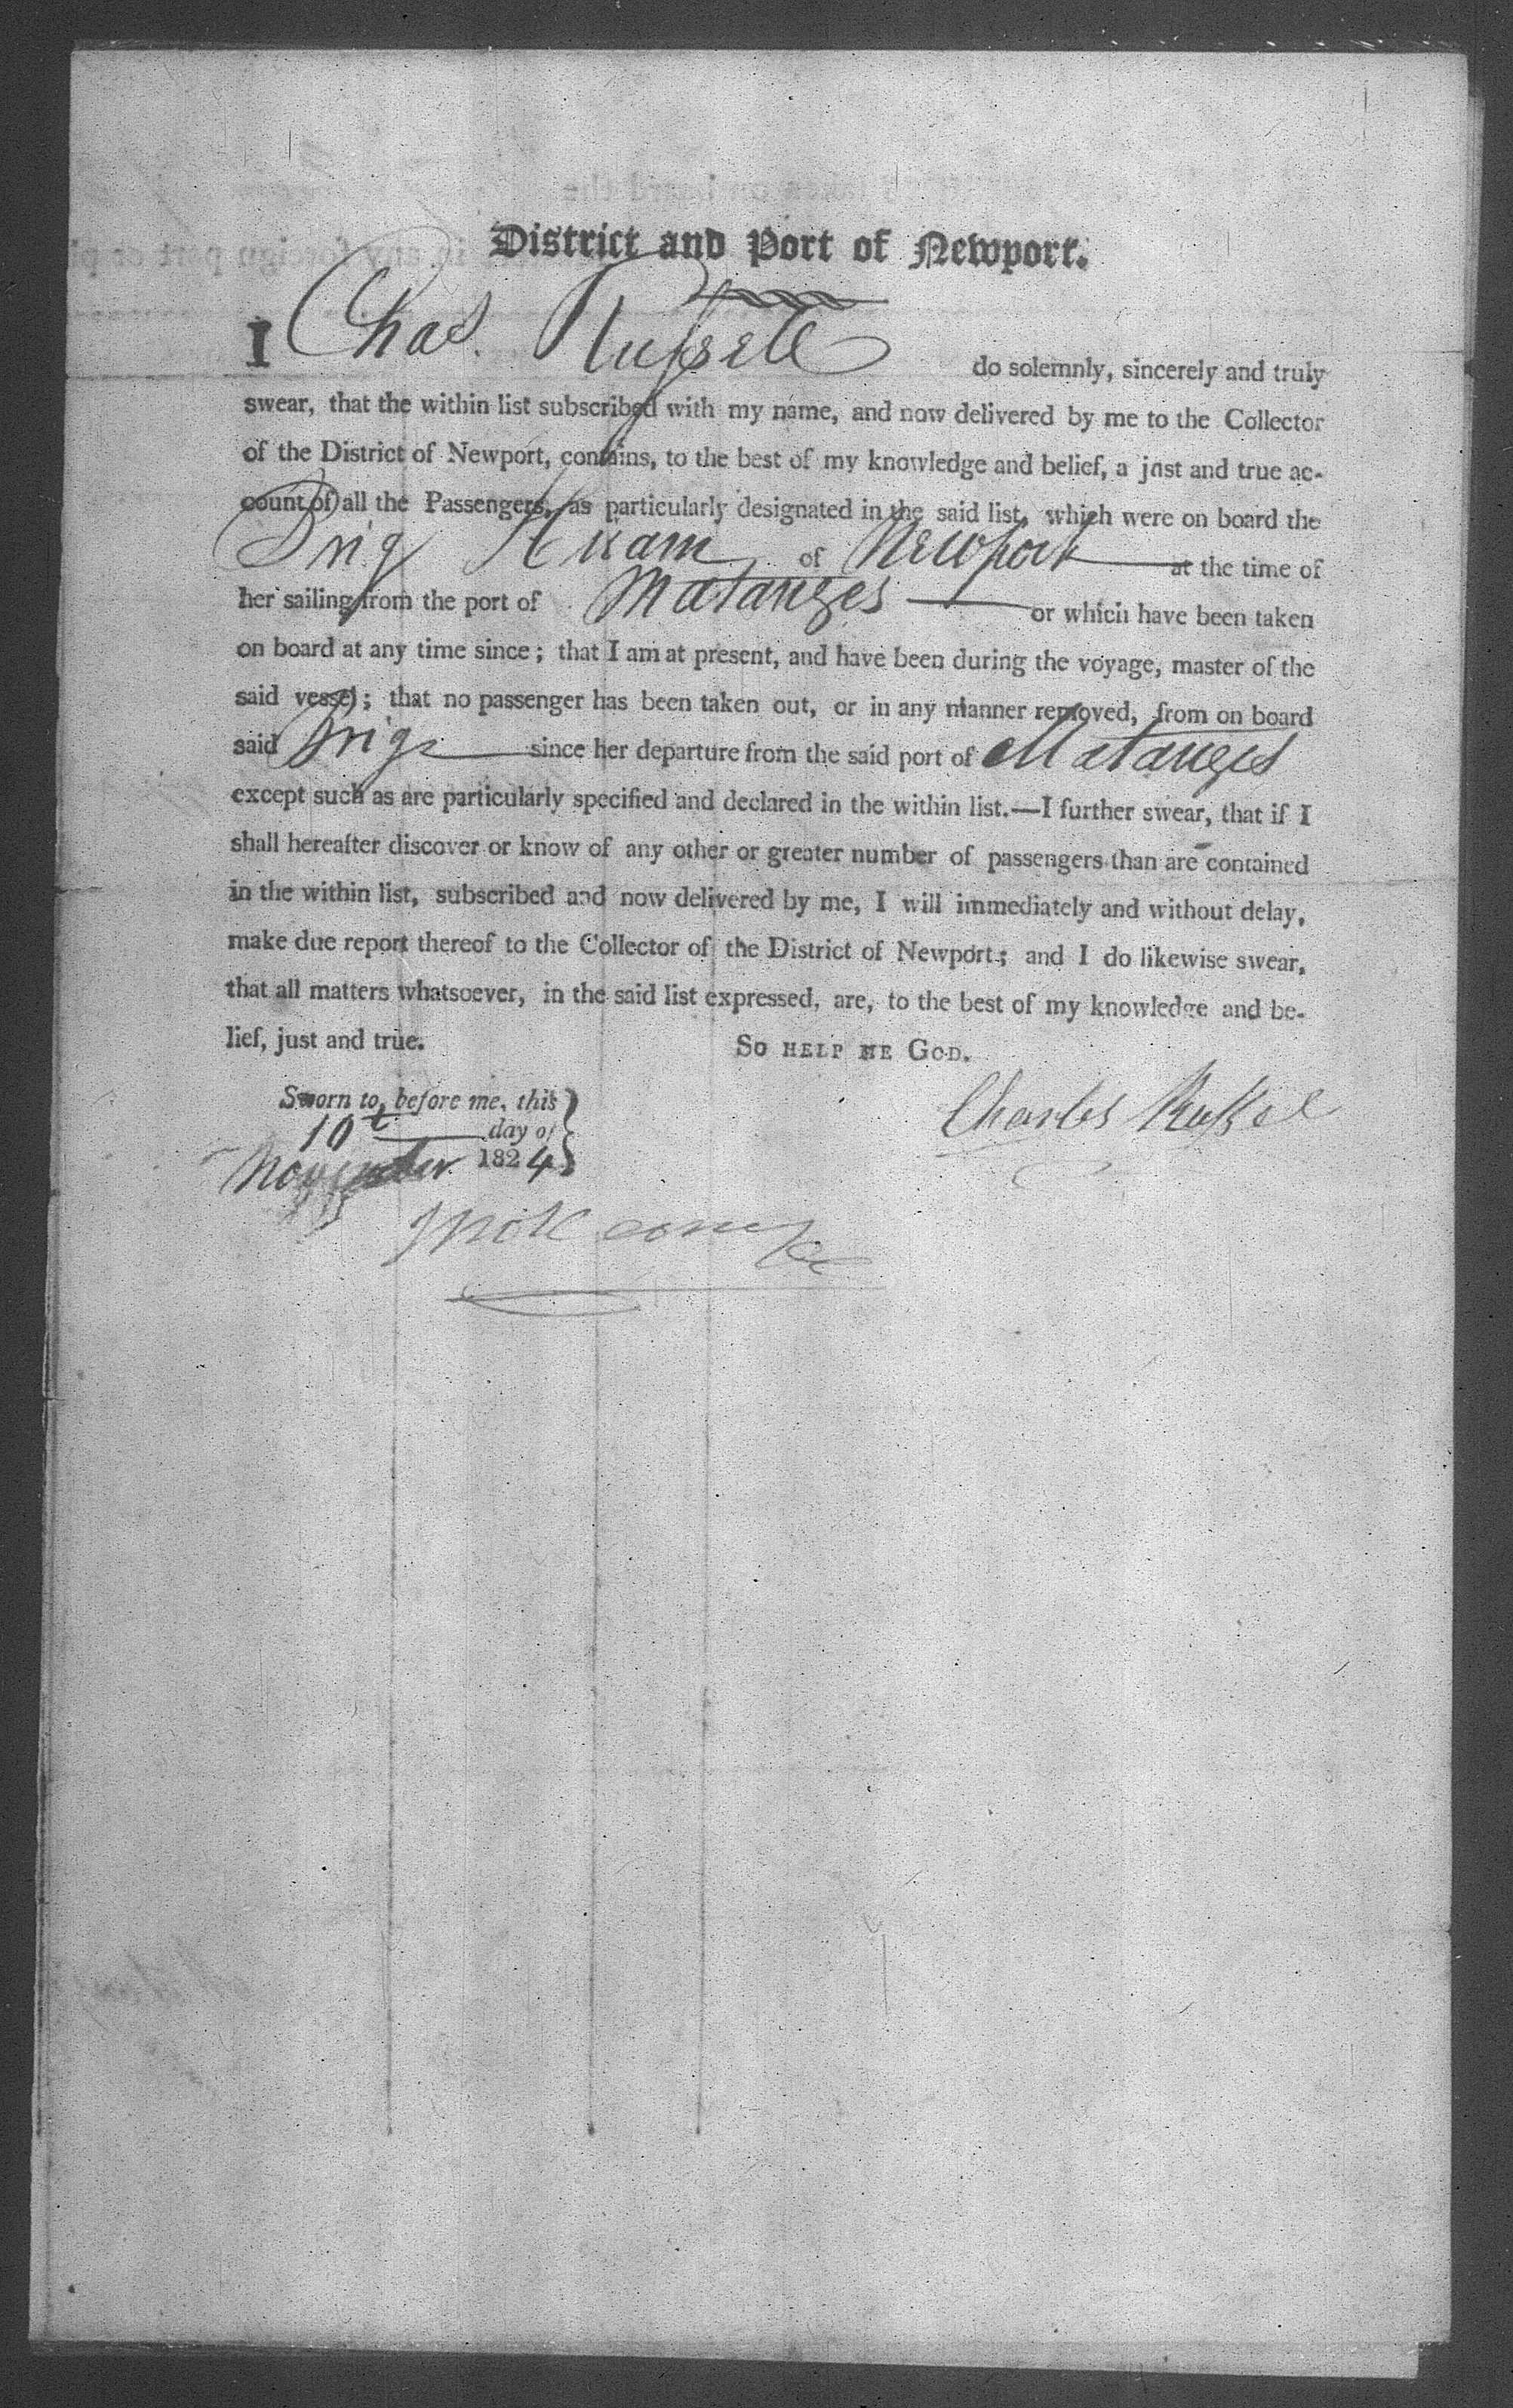 District and Port of Newport.
I Chas. Russell do solemnly, sincerely and truly
swear, that the within list subscribed with my name, and now delivered by me to the Collector
of the District of Newport, contains, to the best of my knowledge and belief, a just and true ac-
count of all the Passengers, as particularly designated in the said list, which were on board the
Brig Hiram of Newport at the time of
her sailing from the port of Matanzes or which have been taken
on board at any time since; that I am at present, and have been during the voyage, master of the
said vessel; that no passenger has been taken out, or in any manner removed, from on board
said Brig since her departure from the said port of Matanzes
except such as are particularly specified and declared in the within list.—I further swear, that if I
shall hereafter discover or know of any other or greater number of passengers than are contained
in the within list, subscribed and now delivered by me, I will immediately and without delay,
make due report thereof to the Collector of the District of Newport; and I do likewise swear,
that all matters whatsoever, in the said list expressed, are, to the best of my knowledge and be-
lief, just and true. SO HELP ME GOD.
Sworn to, before me, this
10t day of
November 1824
Charles Russel